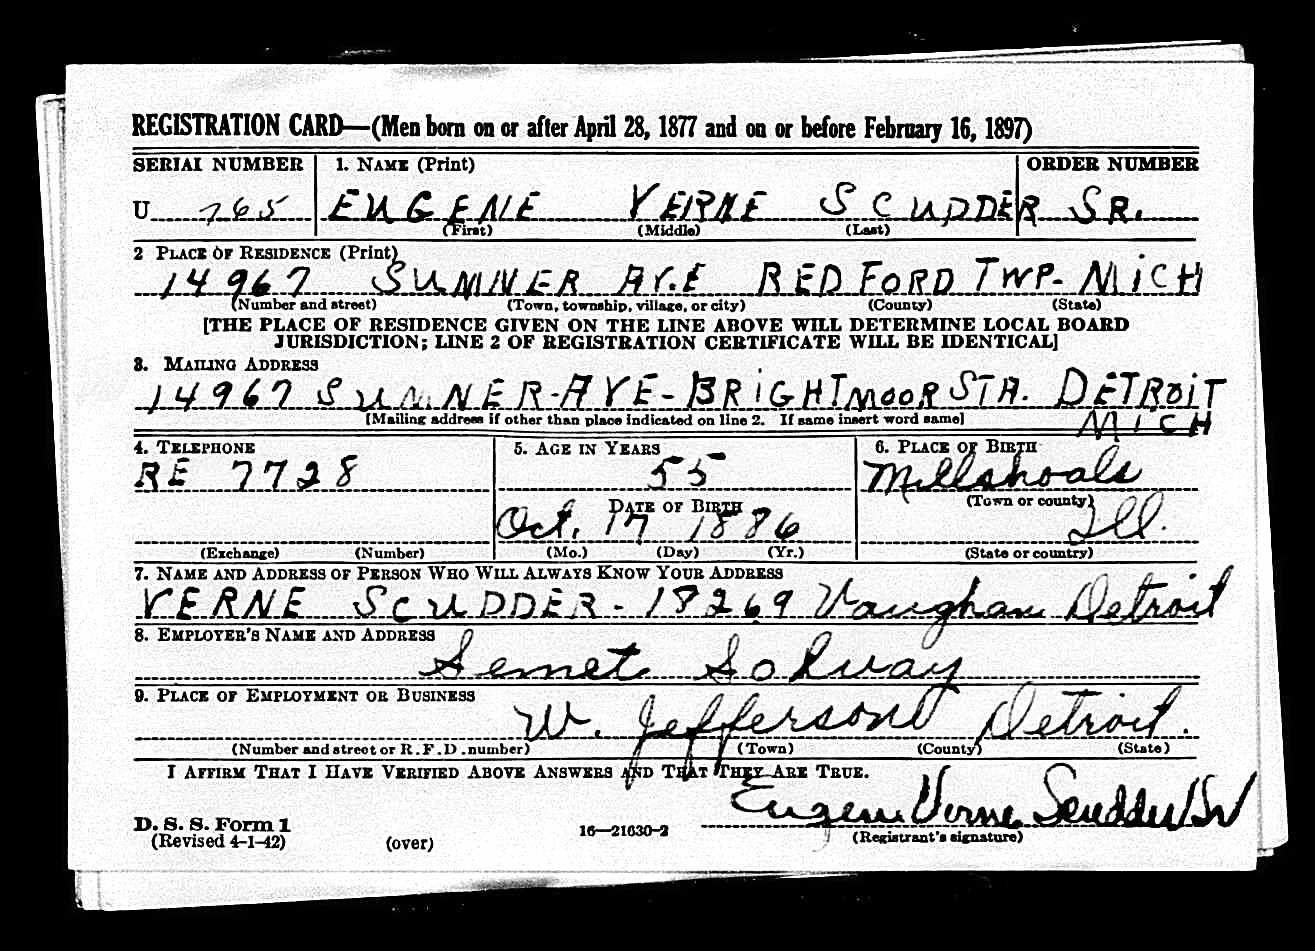 REGISTRATION CARD—(Men born on or after April 28, 1877 and on or before February 16, 1897)
SERIAL NUMBER 1. NAME (Print) ORDER NUMBER
U 765 EUGENE VERNE SCUDDER SR.
(First) (Middle) (Last)
2 PLACE OF RESIDENCE (Print)
14967 SUMNER AVE REDFORD TWP- MICH
(Number and street) (Town, township, village, or city) (County) (State)
[THE PLACE OF RESIDENCE GIVEN ON THE LINE ABOVE WILL DETERMINE LOCAL BOARD
JURISDICTION; LINE 2 OF REGISTRATION CERTIFICATE WILL BE IDENTICAL]
3. MAILING ADDRESS
14967 SUMNER-AVE-BRIGHTMOOR STA. DETROIT
[Mailing address if other than place indicated on line 2. If same insert word same] MICH
4. TELEPHONE 5. AGE IN YEARS 6. PLACE OF BIRTH
RE 7728 55 Millshoals
DATE OF BIRTH (Town or county)
Oct. 17 1886 Ill.
(Exchange) (Number) (Mo.) (Day) (Yr.) (State or country)
7. NAME AND ADDRESS OF PERSON WHO WILL ALWAYS KNOW YOUR ADDRESS
VERNE SCUDDER- 18269 Vaughan Detroit
8. EMPLOYER'S NAME AND ADDRESS
Semet Solvay
9. PLACE OF EMPLOYMENT OR BUSINESS
W. Jefferson Detroit.
(Number and street or R.F.D. number) (Town) (County) (State)
I AFFIRM THAT I HAVE VERIFIED ABOVE ANSWERS AND THAT THEY ARE TRUE.
Eugene Verne Scudder Sr
D. S. S. Form 1
(Revised 4-1-42) (over) 16—21630-2 (Registrant's signature)